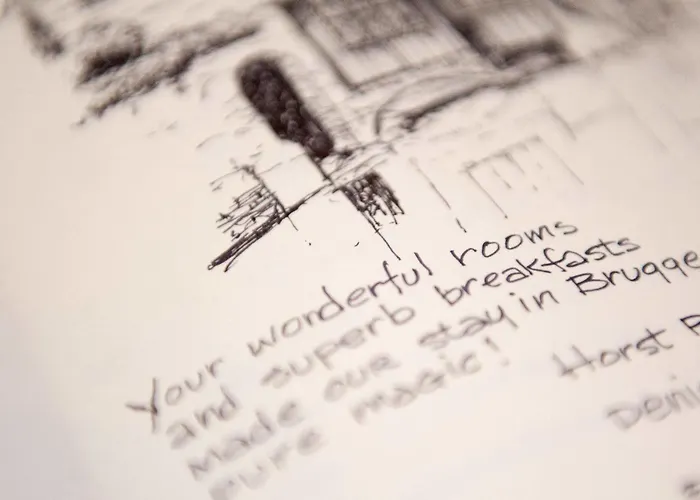 Your wonderful rooms
and superb breakfasts
made our stay in Brugge
pure magic!
Horst